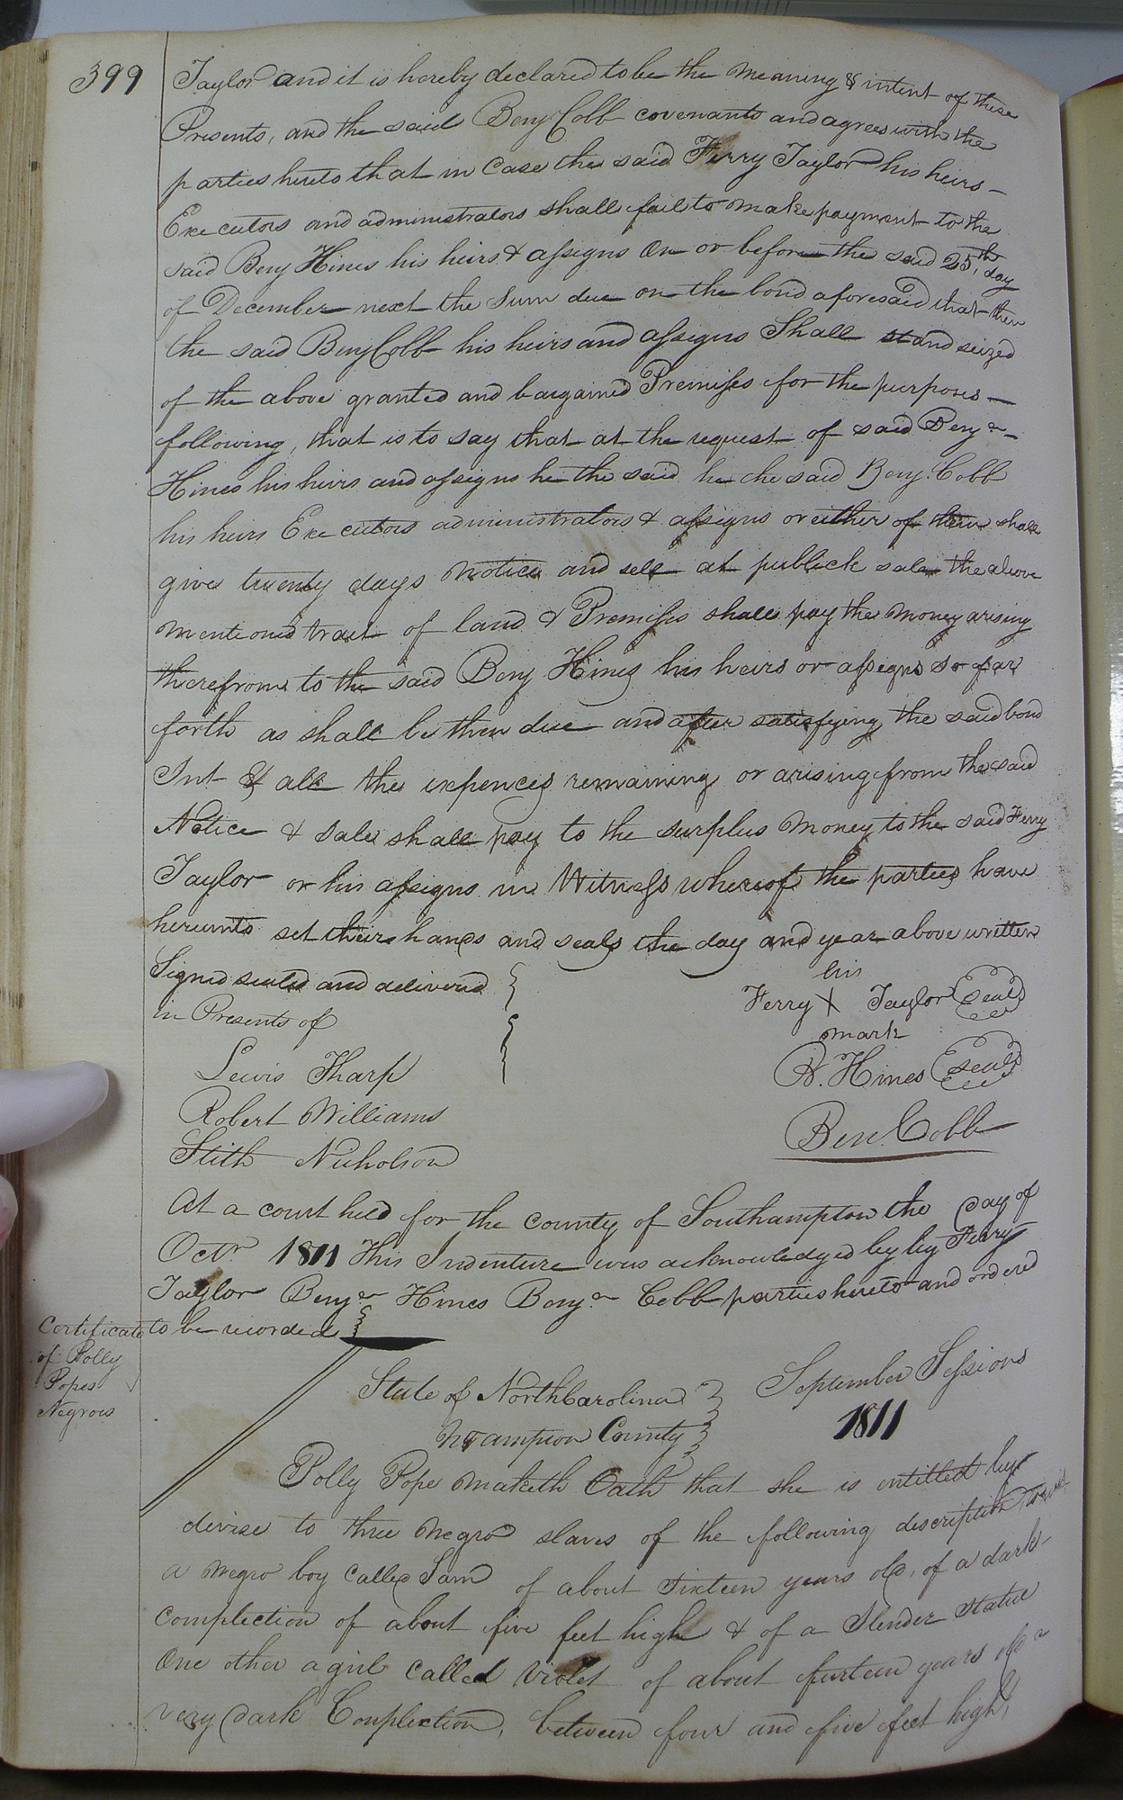 399
Taylor and it is hereby declared to be the meaning & intent of these
Presents, and the said Benj Cobb covenants and agrees with the
parties hereto that in Case the said Ferry Taylor his heirs -
Executors and administrators shall fail to make payment to the
said Benj Hines his heirs & assigns on or before the said 25th day
of December next the sum due on the bond aforesaid that then
the said Benj Cobb his heirs and assigns Shall stand seized
of the above granted and bargained Premisses for the purposes -
following, that is to say that at the request of said Benjn -
Hines his heirs and assigns he the said he the said Benj. Cobb
his heirs Executors administrators & assigns or either of them shall
give twenty days notice and sell at publick sale the above
mentioned tract of land & Premisses shall pay the money arising
therefrom to the said Benj Hines his heirs or assigns so far
forth as shall be then due and after satisfying the said bond
Int & all the expences remaining or arising from the said
Notice & sale shall pay to the surplus money to the said Ferry
Taylor or his assigns in Witness whereof the parties have
hereunto set their hands and seals the day and year above written
Signed sealed and delivered
in Presents of
Lewis Tharp
Robert Williams
Stith Nicholson
his
Ferry X Taylor (Seal)
mark
B. Hines (Seal)
Ben. Cobb
At a court held for the county of Southampton the day of
Octr 1811 This Indenture was acknowledged by by Ferry
Taylor Benjn Hines Benjn Cobb parties hereto and ordered
to be recorded
Certificate
of Polly
Popes
Negroes
State of North Carolina
September Sessions
Nhampton County
1811
Polly Pope maketh Oath that she is entitled by
devise to three negro slaves of the following description to wit
a negro boy called Sam of about sixteen years old, of a dark
complection of about five feet high & of a slender stature
One other a girl called Violet of about fourteen years old
very dark Complection, between four and five feet high,